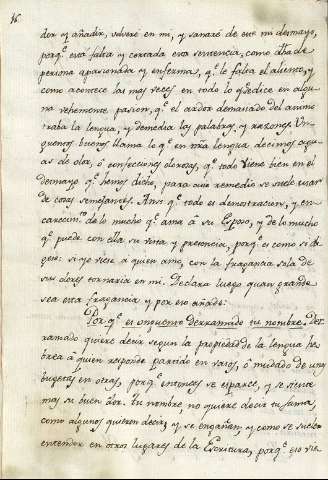 dor y añadir, volveré en mi, y sanaré de este mi desmayo,
porq.e está falta y cortada esta sentencia, como dha de
persona apasionada y enferma, q.e le falta el aliento, y
como acontece las mas veces en todo lo q.e se dice en algu-
na vehemente pasion, q.e el ardor demasiado del animo
traba la lengua, y demedia las palabras, y razones. Un-
guentos buenos llama lo q.e en nra lengua decimos aguas
de olor, ó confecciones olorosas, q.e todo viene bien en el
desmayo q.e hemos dicho, para cuyo remedio se suele usar
de cosas semejantes. Ansi q.e todo es demostracion, y en-
carecim.to de lo mucho q.e ama á su Esposo, y de lo mucho
q.e puede con ella su vista y presencia, porq.e es como si di-
gese: si yo viese á quien amo, con la fragancia sola de
sus olores tornaria en mi. Declara luego quan grande
sea esta fragancia y por eso añade:
Porq.e es unguento derramado tu nombre. Der-
ramado quiere decir segun la propiedad de la lengua he-
brea á quien responde partido en vasos, ó mudado de unas
bugetas en otras, porq.e entonces se esparce, y se siente
mas su buen olor. Tu nombre no quiere decir tu fama,
como algunos quieren decir, y se engañan, y como se suele
entender en otros lugares de la Escritura, porq.e eso vie-